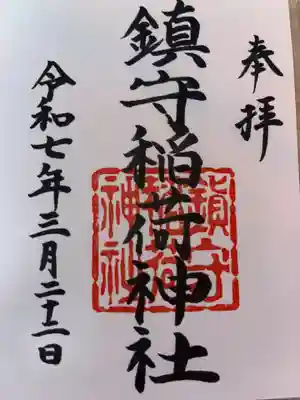 奉拝
鎮守稲荷神社
鎮守
稲荷
神社
令和七年三月二十二日